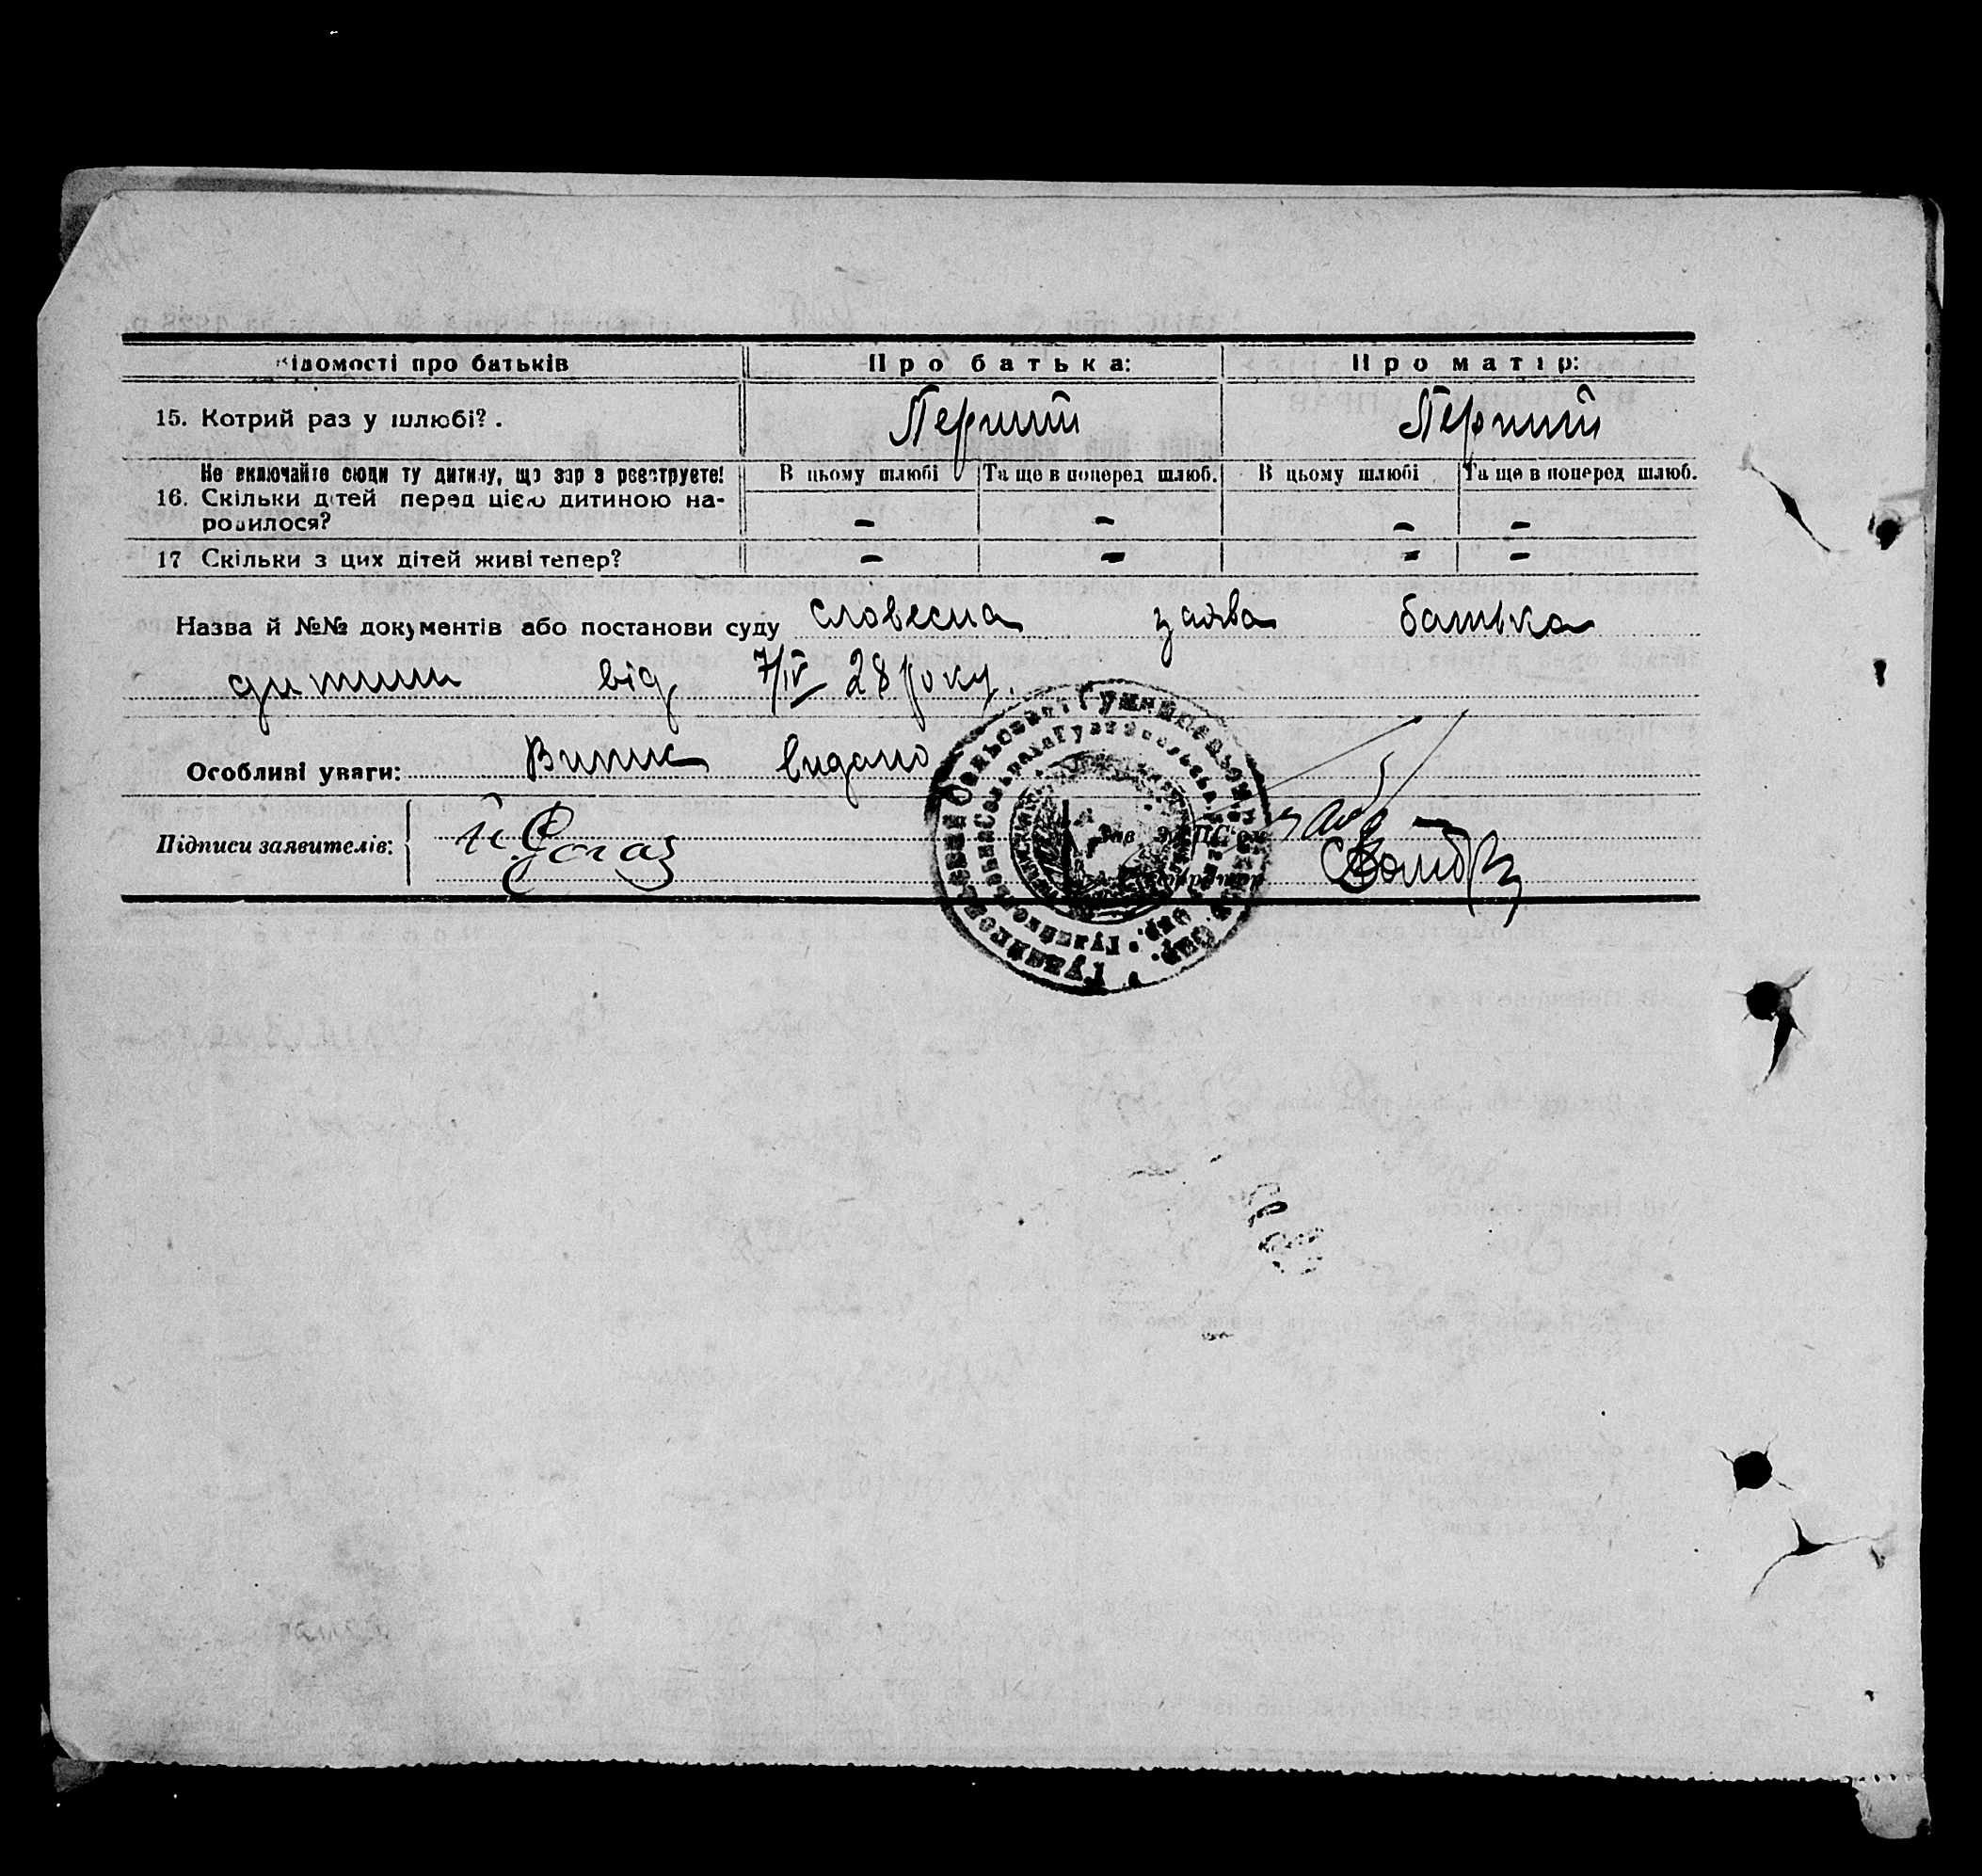 Відомості про батьків Про батька: Про матір:
15. Котрий раз у шлюбі? . Перший Перший
Не включайте сюди ту дитину, що зараз реєструєте! В цьому шлюбі Та ще в поперед шлюб. В цьому шлюбі Та ще в поперед шлюб.
16. Скільки дітей перед цією дитиною на-
родилося? - - - -
17 Скільки з цих дітей живі тепер? - - - -
Назва й №№ документів або постанови суду словесна заява батька
дитини від 7/IV 28 року.
Особливі уваги: Випис видано
Підписи заявителів:
Зав. ЗАГС'ом